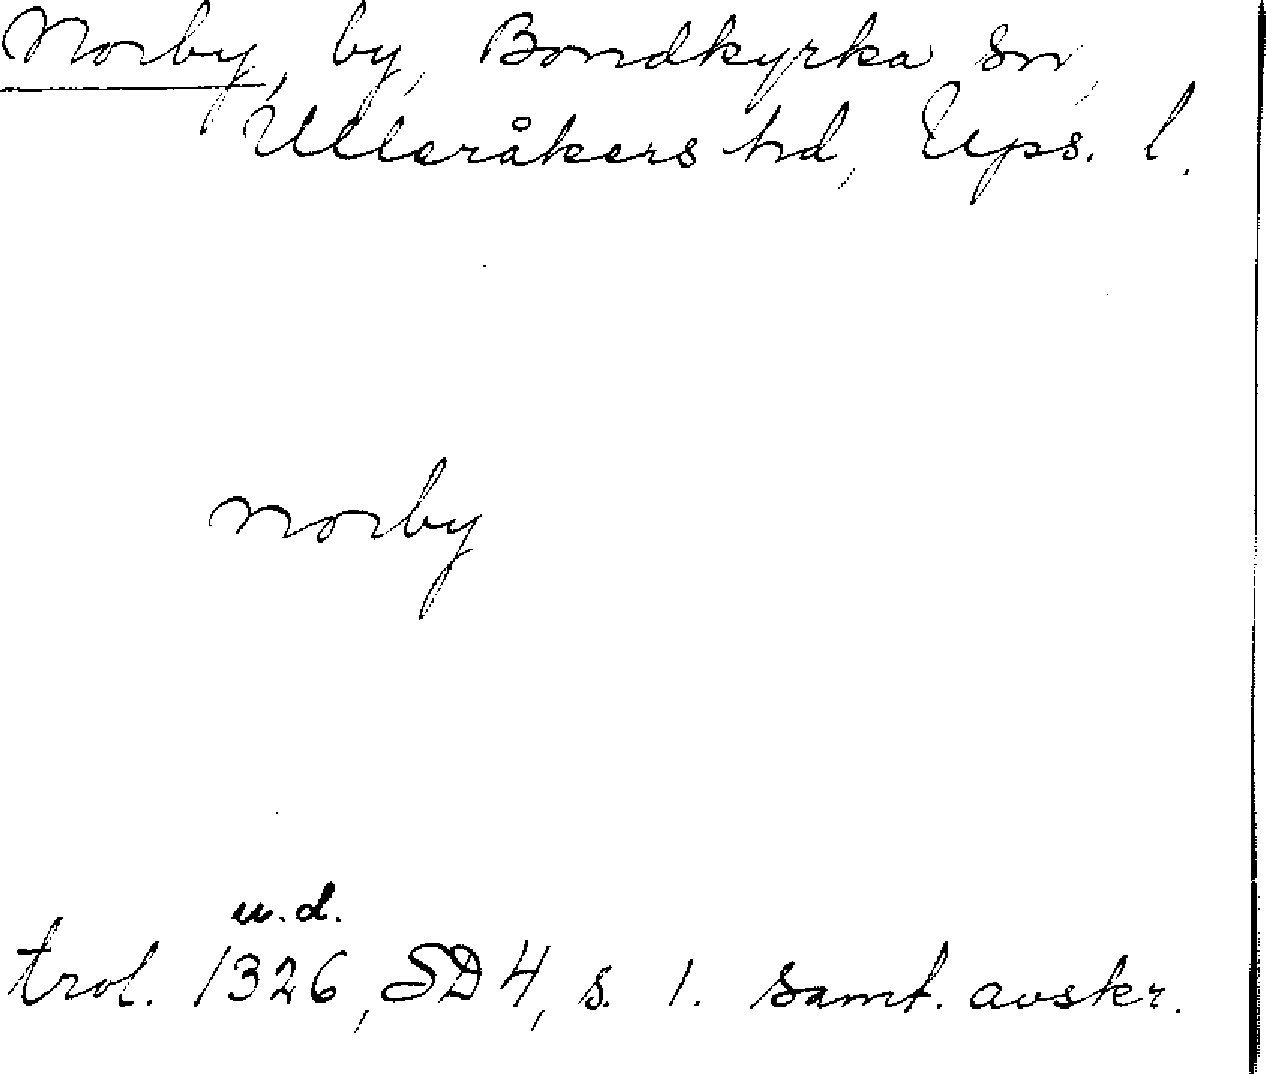 Norby, by, Bondkyrka sn,
Ulleråkers hd, Ups. l.
norby
u.d.
trol. 1326, SD 4, s. 1. samt. avskr.